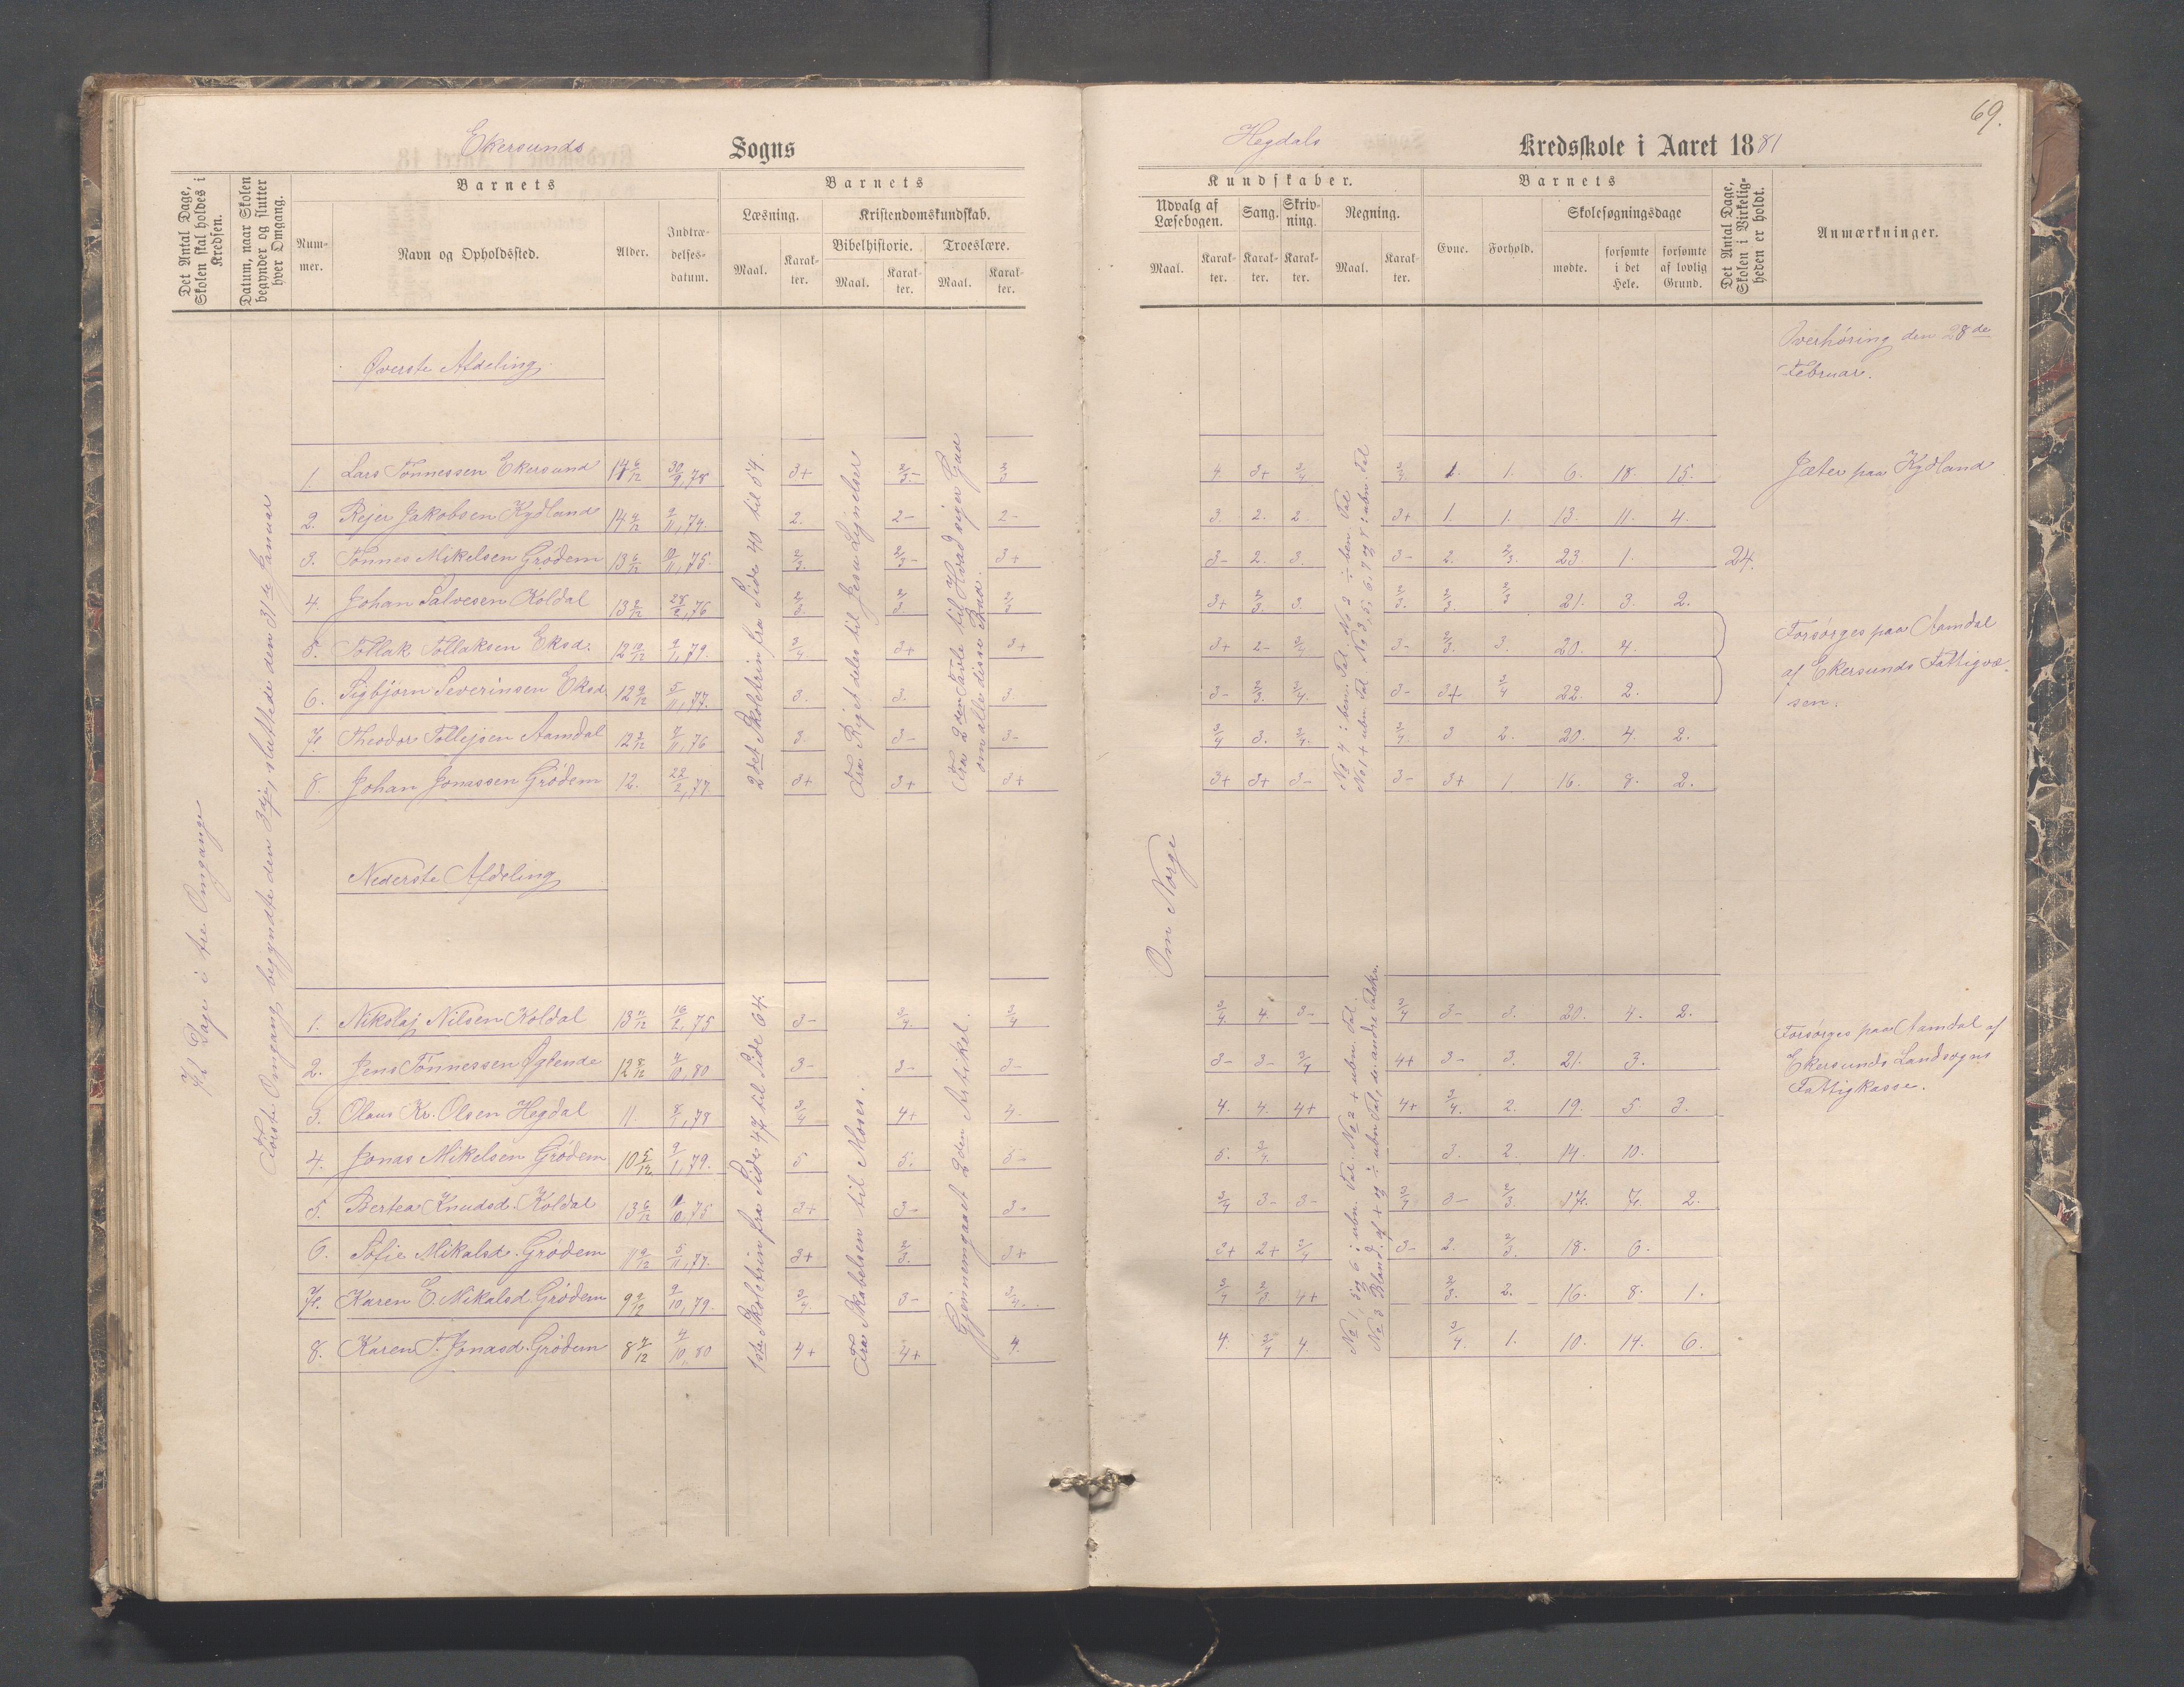 69.
Ekersunds Sogns
Hegdals Kredsskole i Aaret 1881
Det Antal Dage, Skolen skal holdes i Kredsen.
Datum, naar Skolen begynder og slutter hver Omgang.
Barnets
Nummer.
Navn og Opholdssted.
Alder.
Indtrædelsesdatum.
Barnets
Læsning.
Maal.
Karakter.
Kristendomskundskab.
Bibelhistorie.
Maal.
Karakter.
Troeslære.
Maal.
Karakter.
Kundskaber.
Udvalg af Læsebogen.
Maal.
Karakter.
Sang.
Karakter.
Skrivning.
Karakter.
Regning.
Maal.
Karakter.
Barnets
Evne.
Forhold.
Skolesøgningsdage
mødte.
forsømte i det Hele.
forsømte af lovlig Grund.
Det Antal Dage, Skolen i Virkeligheden er holdt.
Anmærkninger.
Øverste Afdeling.
Overhøring den 28de
Februar.
1. Lars Tønnessen Ekersund 14 6/12 30/9, 78 3+ 2/3- 4. 3+ 3/4 1. 1. 6. 18. 15. Jæter paa Kydland
2. Rejer Jakobsen Kydland 14 4/12 9/11, 74. 2. 2- 2- 3. 2. 2. 3+ 1. 1. 13. 11. 4.
3. Tønnes Mikelsen Grødem 13 6/12 10/11, 75. 2/3. 2/3- 3+ 3- 2. 3. 3- 2. 2/3. 23. 1. 24.
4. Johan Salvesen Koldal 13 2/12 28/2, 76 2/3 2/3 2/3 3+ 2/3. 3. 2/3. 2/3. 2/3 21. 3. 2.
5. Tollak Tollaksen Eksd. 12 10/12 9/1, 79. 3/4 3+ 3+ 3+ 2- 3/4 3- 2/3. 3. 20. 4.
6. Sigbjørn Severinsen Eksd. 12 9/12 5/11, 77. 3. 3. 3. 3- 2/3. 3/4. 3- 3+ 3/4 22. 2.
7. Theodor Tollejsen Aamdal 12 2/12 7/11, 76 3 3- 3- 3/4 3. 3/4. 3/4. 3 2. 20. 4. 2.
8. Johan Jonassen Grødem 12. 22/2, 77. 3+ 3+ 3+ 3+ 3+ 3- 3- 3+ 1 16. 8. 2.
Forsørges paa Aamdal
af Ekersunds Fattigvæ-
sen.
2det Skoletrin fra Side 40 til 54.
Fra Riget deles til Jesu Lignelser
Fra 2den Tavle til Hvad siger Gud
om alle disse Bud.
Første Omgang begyndte den 3dj, sluttede den 31te Januar
72 Dage i tre Omgange
Om Norge
Nederste Afdeling
1. Nikolaj Nilsen Koldal 13 11/12 16/2, 75 3- 3/4. 3/4 3/4. 4. 3- 3/4 3- 3. 20. 4. 2.
2. Jens Tønnessen Øglende 12 8/12 4/10, 80 3- 3- 3- 3- 3- 3/4 4+ 3- 3. 21. 3.
3. Olaus Kr. Olsen Hegdal 11. 8/1, 78 3/4 4+ 4. 4. 4. 4+ 4+ 3/4. 2. 19. 5 3.
4. Jonas Mikelsen Grødem 10 5/12 9/1, 79. 5. 5. 5- 5. 3/4. 3. 2. 14. 10.
5. Bertea Knudsd. Koldal 13 6/12 1/10, 75 3+ 3- 3- 3/4 3- 3- 3/4 3- 2/3. 17. 7. 2.
6. Sofie Mikalsd. Grødem 11 9/12 5/11, 77. 3+ 2/3. 3+ 3+ 2+ 3/4 3- 2. 2/3. 18. 6.
7. Karen E. Mikalsd. Grødem 9 2/12 9/10, 79. 3/4 3- 3/4. 3/4 2/3 4+ 2/3. 2. 16. 8. 1.
8. Karen T. Jonasd. Grødem 8 4/12 4/10, 80 4+ 4+ 4. 4. 3/4 4. 3/4. 1. 10. 14. 6.
Forsørges paa Aamdal af
Ekersunds Landsogns
Fattigkasse.
1ste Skoletrin fra Side 47 til Side 64.
Fra Skabelsen til Moses.
Gjennemgaaet 2den Artikel.